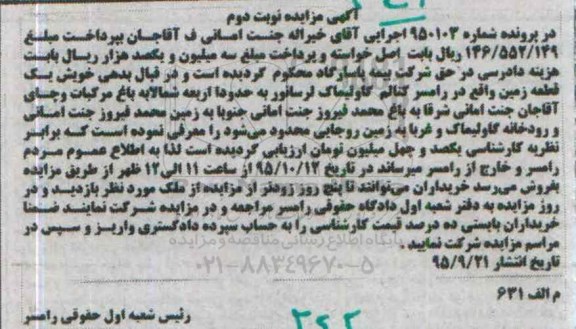 آگهی مزایده نوبت دوم
در پرونده شماره ۹۵۰۱۰۳ اجرایی آقای خیراله جنت امانی ف آقاجان بپرداخت مبلغ
۱۳۶/۵۵۲/۱۴۹ ریال بابت اصل خواسته و پرداخت مبلغ سه میلیون و یکصد هزار ریال بابت
هزینه دادرسی در حق شرکت بیمه پاسارگاد محکوم گردیده است و در قبال بدهی خویش یک
قطعه زمین واقع در رامسر کتالم گاولیماک لرسانور به حدودا اربعه شمالا به باغ مرکبات وچای
آقاجان جنت امانی شرقا به باغ محمد فیروز جنت امانی جنوبا به زمین محمد فیروز جنت امانی
و رودخانه گاولیماک و غربا به زمین روجایی محدود می‌شود را معرفی نموده است که برابر
نظریه کارشناسی یکصد و چهل میلیون تومان ارزیابی گردیده است لذا به اطلاع عموم مردم
رامسر و خارج از رامسر میرساند در تاریخ ۹۵/۱۰/۱۲ از ساعت ۱۱ الی ۱۲ ظهر از طریق مزایده
بفروش می‌رسد خریداران می‌توانند تا پنج روز زودتر از مزایده از ملک مورد نظر بازدید و در
روز مزایده به دفتر شعبه اول دادگاه حقوقی رامسر مراجعه و در مزایده شرکت نمایند ضمنا
خریداران بایستی ده درصد قیمت کارشناسی را به حساب سپرده دادگستری واریز و سپس در
مراسم مزایده شرکت نمایید.
پایگاه اطلاع رسانی مناقصه و مزایده
تاریخ انتشار ۹۵/۹/۲۱
۰۲۱-۸۸۳۴۹۶۷۰-۵
م الف ۶۳۱
رئیس شعبه اول حقوقی رامسر
۲۴۲